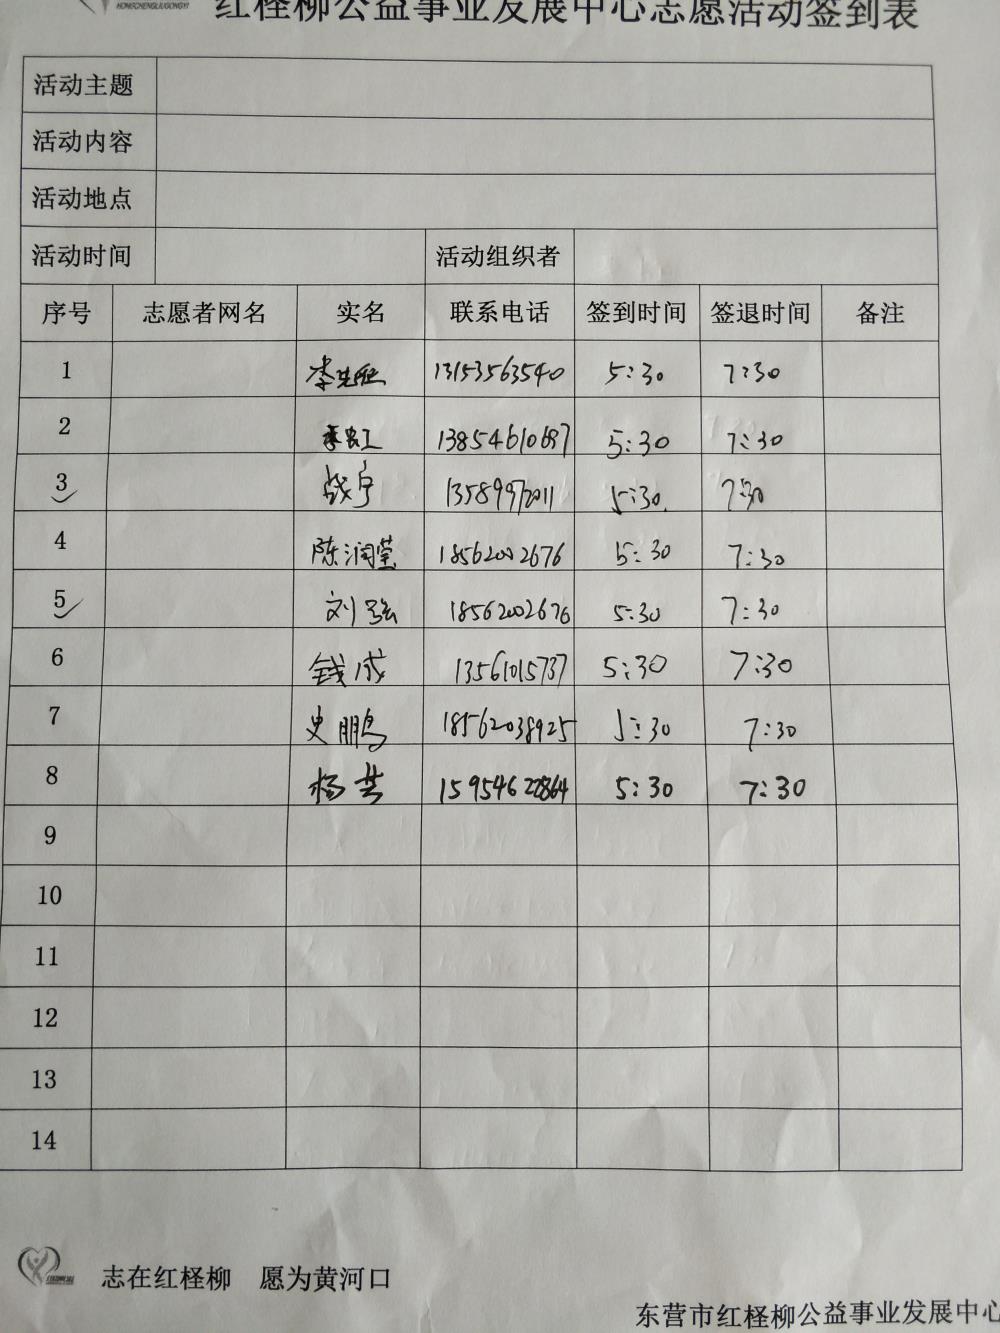 HONGCHENGLIUGONGYI
红柽柳公益事业发展中心志愿活动签到表
活动主题
活动内容
活动地点
活动时间 活动组织者
序号 志愿者网名 实名 联系电话 签到时间 签退时间 备注
1 13153563540 5:30 7:30
2 李红 13854610697 5:30 7:30
3 战宁 13589972011 5:30 7:30
4 陈润莹 18562002676 5:30 7:30
5 刘强 18562002676 5:30 7:30
6 钱成 13561015737 5:30 7:30
7 史鹏 18562038925 5:30 7:30
8 杨芸 15954622864 5:30 7:30
9
10
11
12
13
14
志在红柽柳 愿为黄河口
东营市红柽柳公益事业发展中心